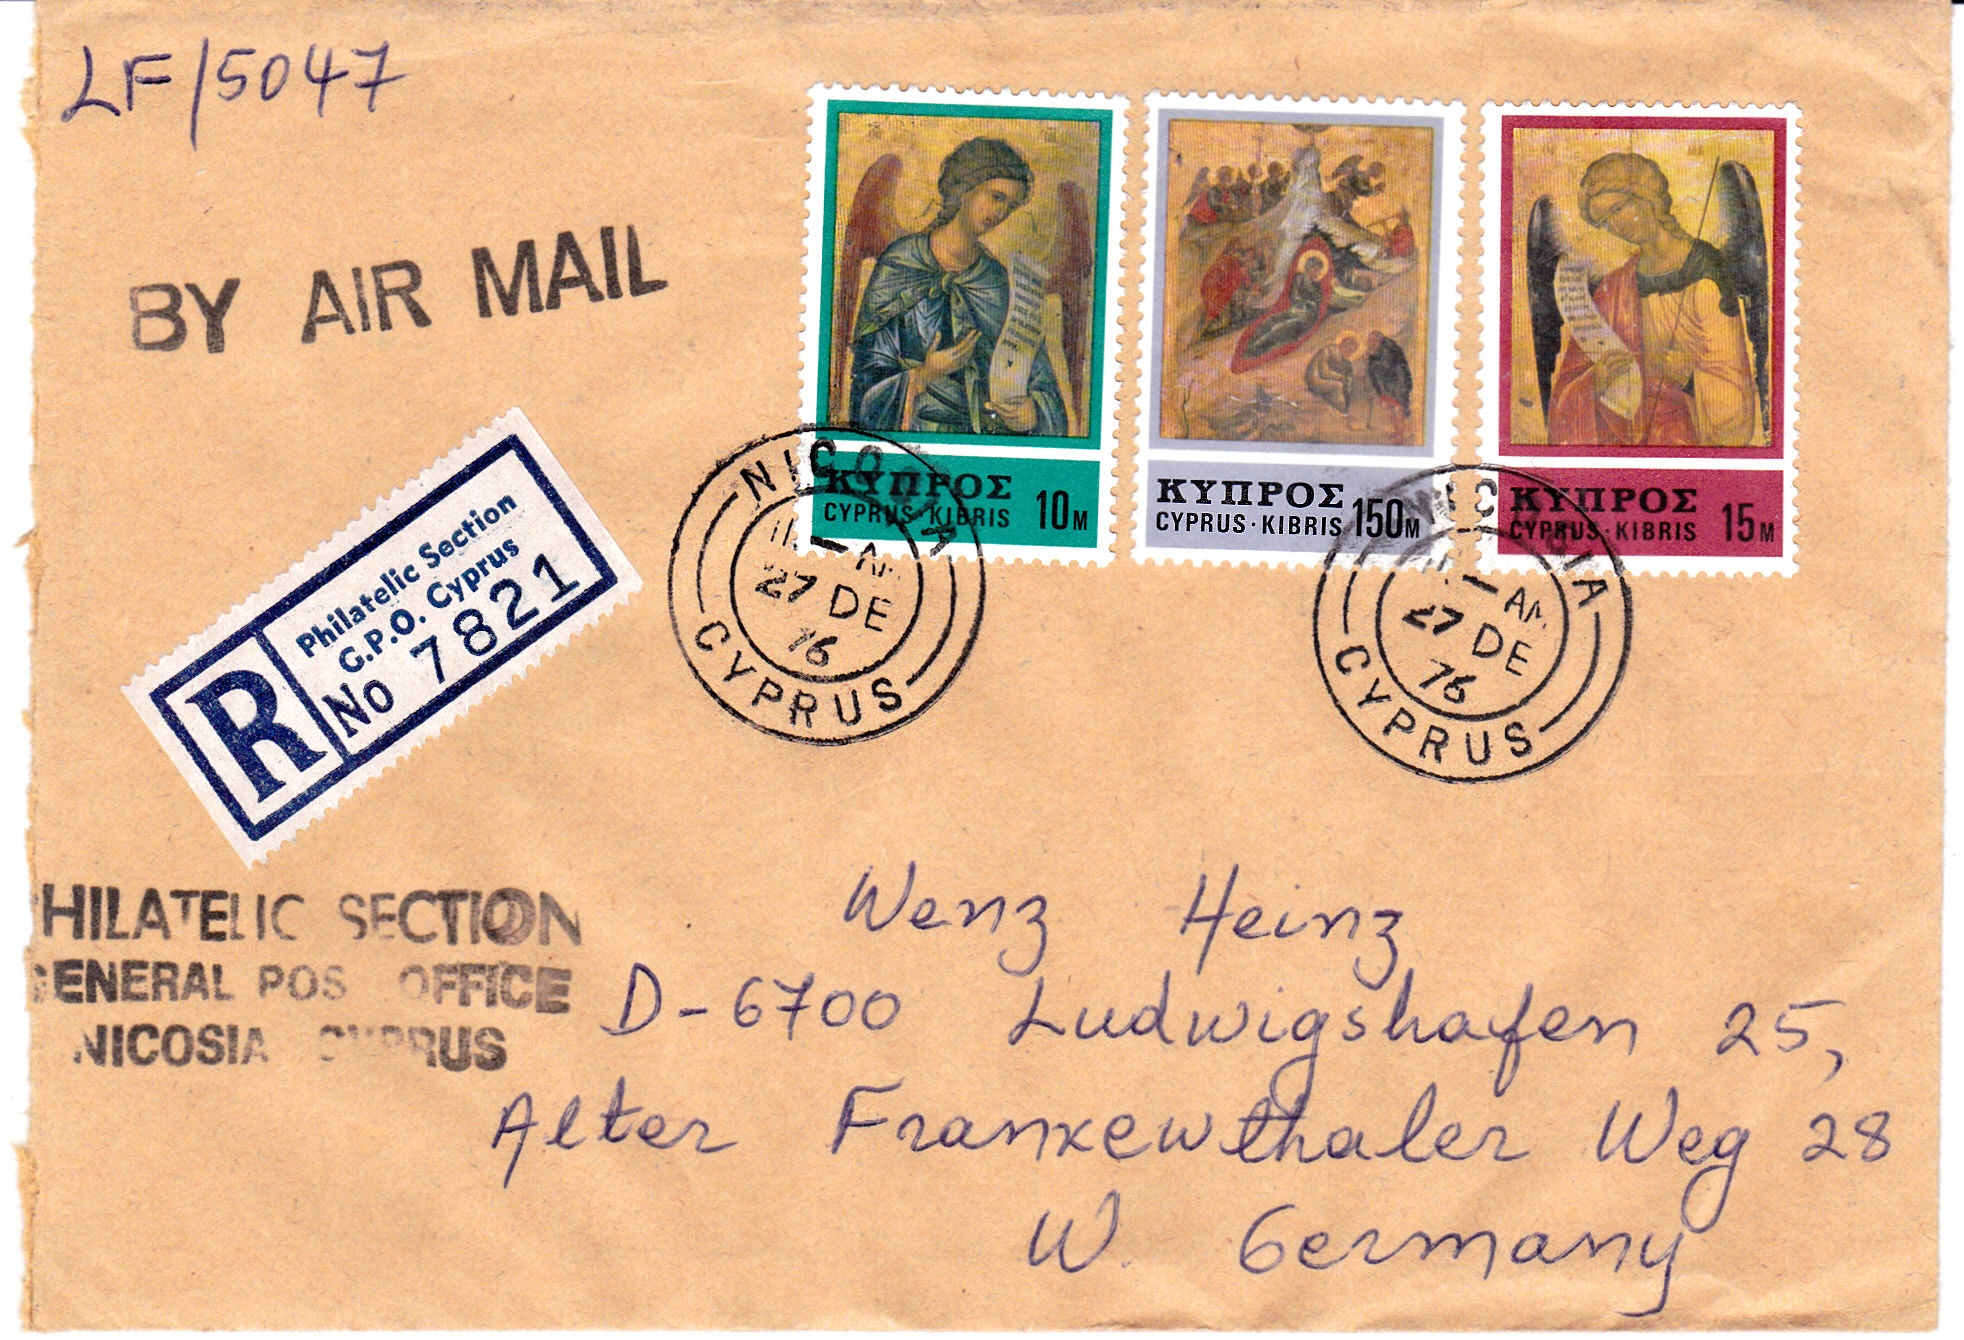 LF/5047
BY AIR MAIL
ΚΥΠΡΟΣ
CYPRUS·KIBRIS 10M
ΚΥΠΡΟΣ
CYPRUS·KIBRIS 150M
ΚΥΠΡΟΣ
CYPRUS·KIBRIS 15M
NICOSIA
AM
27 DE
76
CYPRUS
NICOSIA
AM
27 DE
76
CYPRUS
R
Philatelic Section
G.P.O. Cyprus
No 7821
HILATELIC SECTION
GENERAL POS OFFICE
NICOSIA CYPRUS
Wenz Heinz
D-6700 Ludwigshafen 25,
Alter Frankewthaler Weg 28
W. Germany